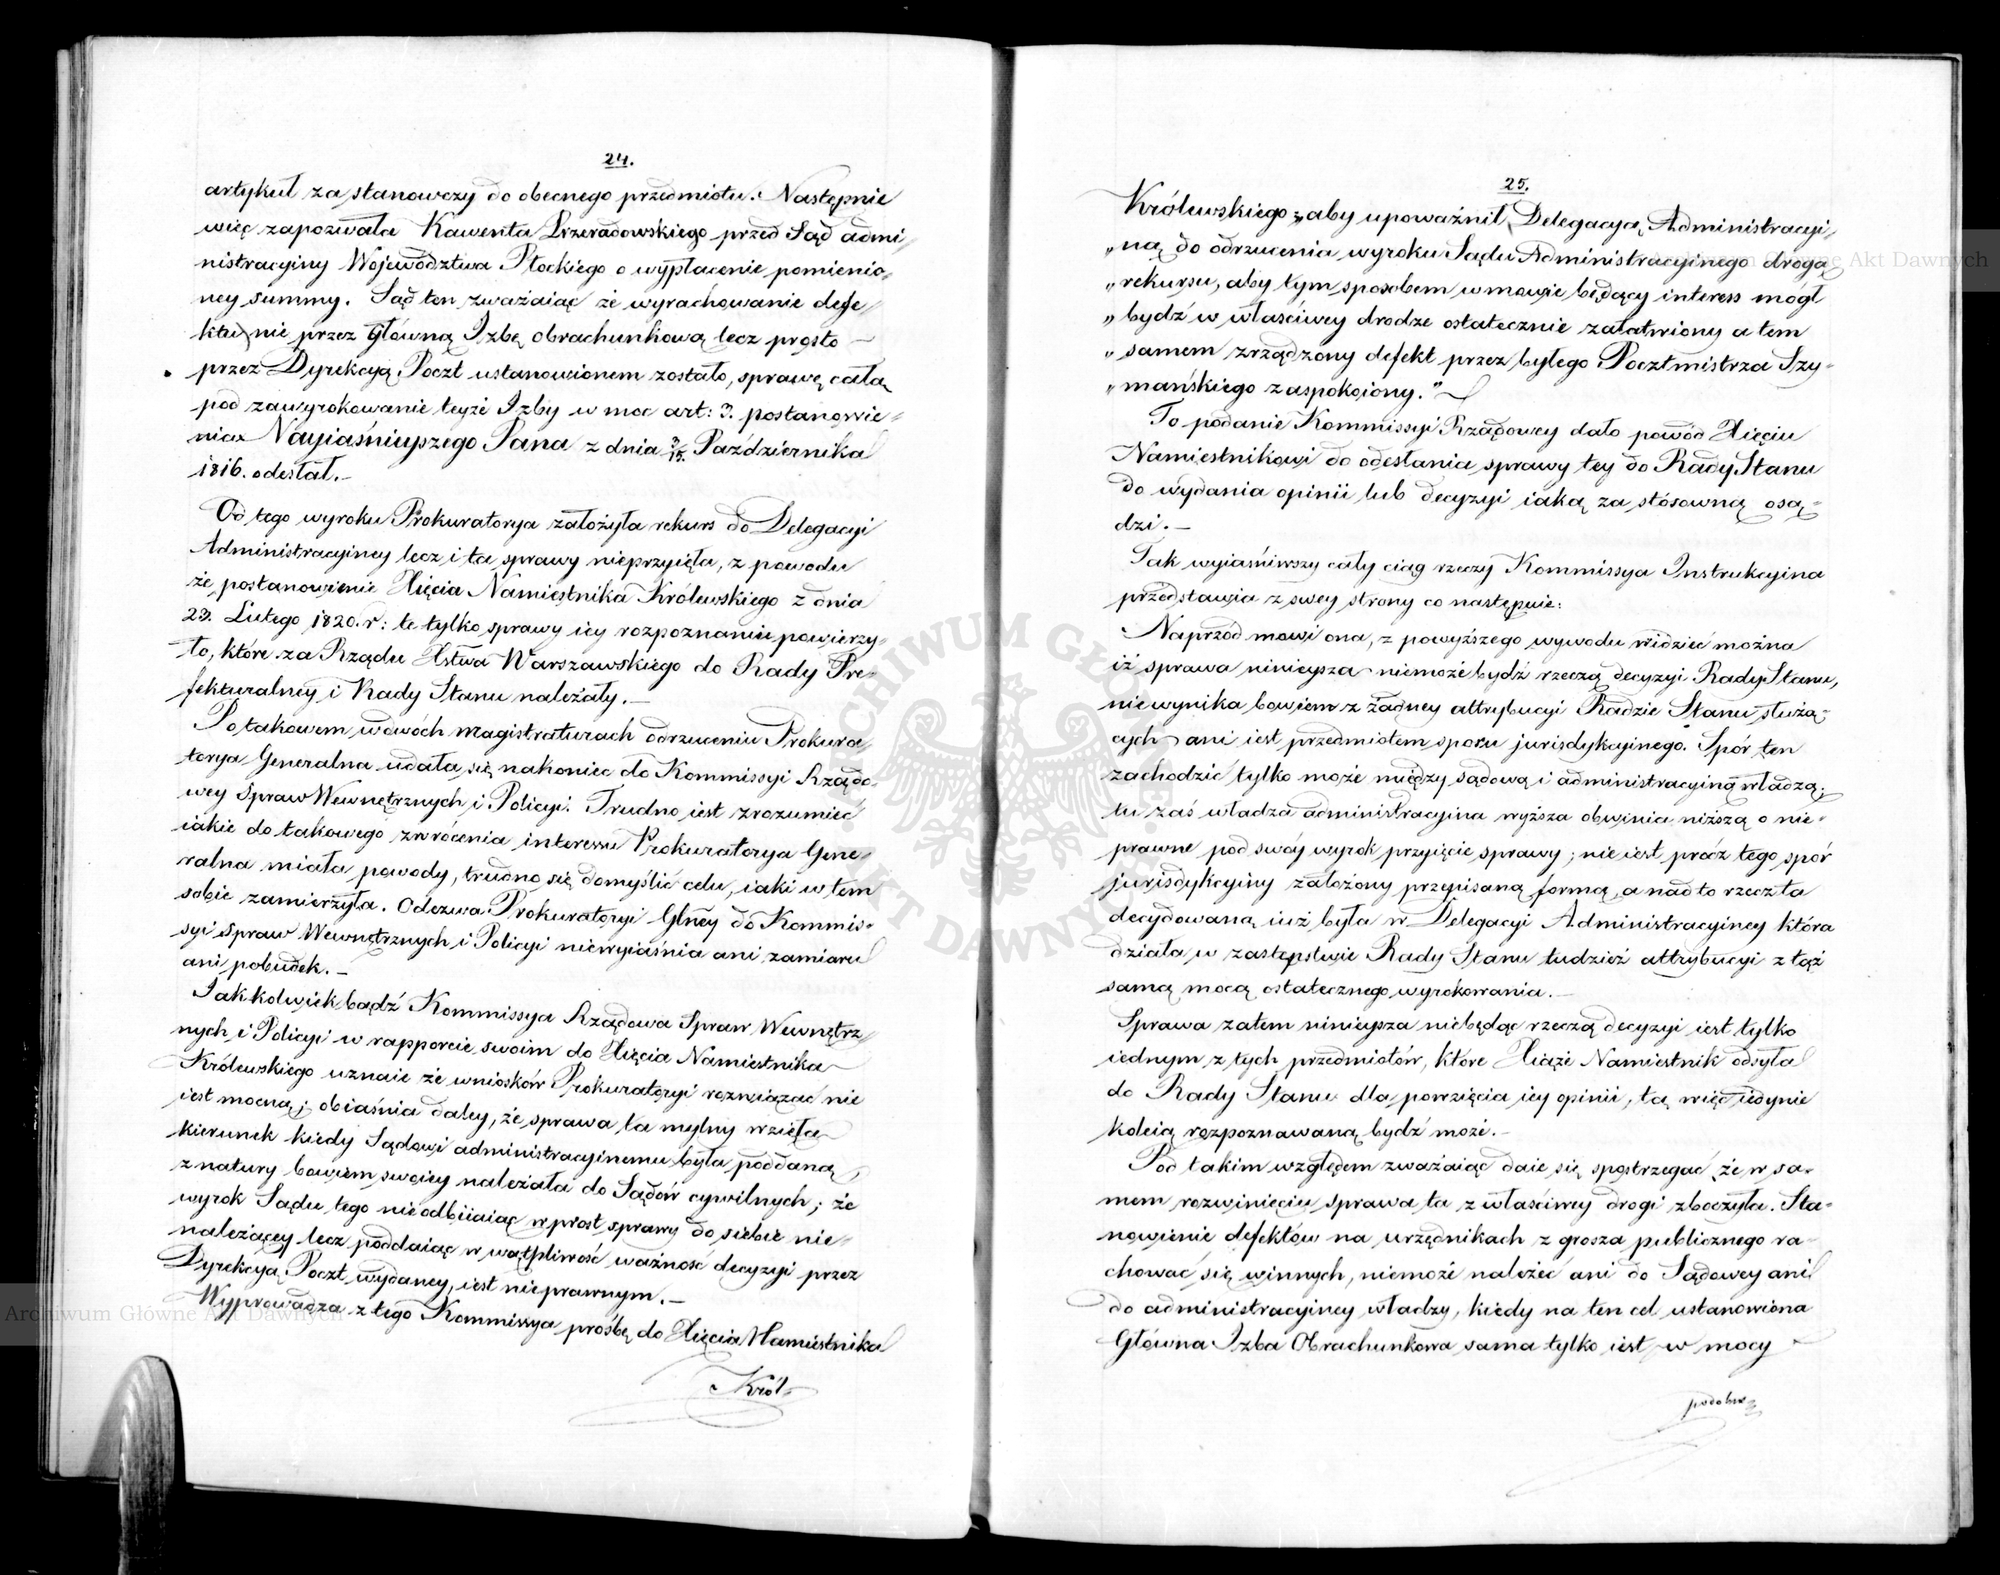 24.
artykuł za stanowczy do obecnego przedmiotu. Następnie
więc zapozwała Kawenta Przeradowskiego przed Sąd admi„
nistracyiny Województwa Płockiego o wypłacenie pomienio„
ney summy. Sąd ten zważaiąc że wyrachowanie defe„
ktu nie przez Główną Izbę obrachunkową lecz prosto —
przez Dyrekcyą Poczt ustanowionem zostało, sprawę całą
pod zawyrokowanie teyże Izby w moc art: 3. postanowie„
nia Nayiaśnieyszego Pana z dnia 3/15. Października
1816. odesłał.—
Od tego wyroku Prokuratorya założyła rekurs do Delegacyi
Administracyiney lecz i ta sprawy nieprzyięła, z powodu
że postanowienie Xięcia Namiestnika Królewskiego z dnia
23. Lutego 1820. r: te tylko sprawy iey rozpoznaniu powierzy„
ło, które za Rządu Xstwa Warszawskiego do Rady Pre„
fekturalney i Rady Stanu należały.—
Po takowem w dwóch magistraturach odrzuceniu Prokura„
torya Generalna udała się nakoniec do Kommissyi Rządo„
wey Spraw Wewnętrznych i Policyi. Trudno iest zrozumieć
iakie do takowego zwrócenia interessu Prokuratorya Gene„
ralna miała powody, trudno się domyślić celu, iaki w tem
sobie zamierzyła. Odezwa Prokuratoryi Głney do Kommis„
syi Spraw Wewnętrznych i Policyi niewyiaśnia ani zamiaru
ani pobudek.—
Jakkolwiekbądź Kommissya Rządowa Spraw Wewnętrz„
nych i Policyi w rapporcie swoim do Xięcia Namiestnika
Królewskiego uznaie że wniosków Prokuratoryi rozwiązać nie
iest mocną; obiaśnia daley, że sprawa ta mylny wzięła
kierunek kiedy Sądowi administracyinemu była poddaną
z natury bowiem swoiey należała do Sądów cywilnych; że
wyrok Sądu tego nieodbiiaiąc wprost sprawy do siebie nie„
należącey lecz poddaiąc w wątpliwość ważność decyzyi przez
Dyrekcyą Poczt wydaney, iest nieprawnym.—
Wyprowadza z tego Kommissya prośbę do Xięcia Namiestnika
Król„
25.
Królewskiego „aby upoważnił Delegacyą Administracyi„
„ną do odrzucenia wyroku Sądu Administracyinego drogą
„rekursu, aby tym sposobem w mowie będący interess mógł
„bydź w właściwey drodze ostatecznie załatwiony a tem
„samem zrządzony defekt przez byłego Pocztmistrza Szy„
„mańskiego zaspokoiony.”—
To podanie Kommissyi Rządowey dało powód Xięciu
Namiestnikowi do odesłania sprawy tey do Rady Stanu
do wydania opinii lub decyzyi iaką za stósowną osą„
dzi.—
Tak wyiaśniwszy cały ciąg rzeczy Kommissya Instrukcyina
przedstawia z swey strony co następuie:
Naprzód mówi ona, z powyższego wywodu widzieć można
iż sprawa ninieysza niemoże bydź rzeczą decyzyi Rady Stanu,
niewynika bowiem z żadney attrybucyi Radzie Stanu służą„
cych ani iest przedmiotem sporu jurisdykcyinego. Spór ten
zachodzić tylko może między sądową i administracyiną władzą;
tu zaś władza administracyina wyższa obwinia niższą o nie„
prawne pod swóy wyrok przyięcie sprawy; nie iest prócz tego spór
jurisdykcyiny założony przepisaną formą, a nadto rzecz ta
decydowaną iuż była w Delegacyi Administracyiney która
działa w zastępstwie Rady Stanu tudzież attrybucyi z tąż
samą mocą ostatecznego wyrokowania.—
Sprawa zatem ninieysza niebędąc rzeczą decyzyi iest tylko
iednym z tych przedmiotów, które Xiąże Namiestnik odsyła
do Rady Stanu dla powzięcia iey opinii, tą więc iedynie
koleią rozpoznawaną bydź może.—
Pod takim względem zważaiąc daie się spostrzegać, że w sa„
mem rozwinięciu sprawa ta z właściwey drogi zboczyła. Sta„
nowienie defektów na urzędnikach z grosza publicznego ra„
chować się winnych, niemoże należeć ani do Sądowey ani
do administracyiney władzy, kiedy na ten cel ustanowiona
Główna Izba Obrachunkowa sama tylko iest w mocy —
podobne
ARCHIWUM GŁÓWNE AKT DAWNYCH
Archiwum Główne Akt Dawnych
Archiwum Główne Akt Dawnych